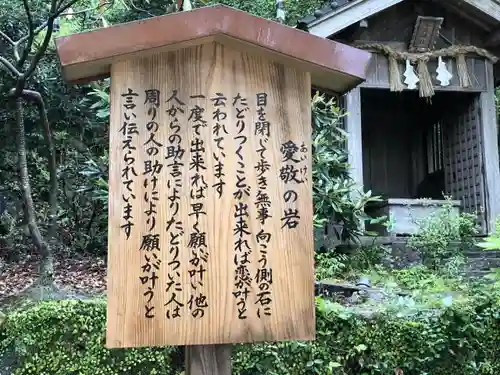 愛敬の岩
あいけい
目を閉じて歩き無事 向こう側の石に
たどりつくことが出来れば恋が叶うと
云われています
一度で出来れば早く願いが叶い、他の
人からの助言によりたどりついた人は
周りの人の助けにより願いが叶うと
言い伝えられています